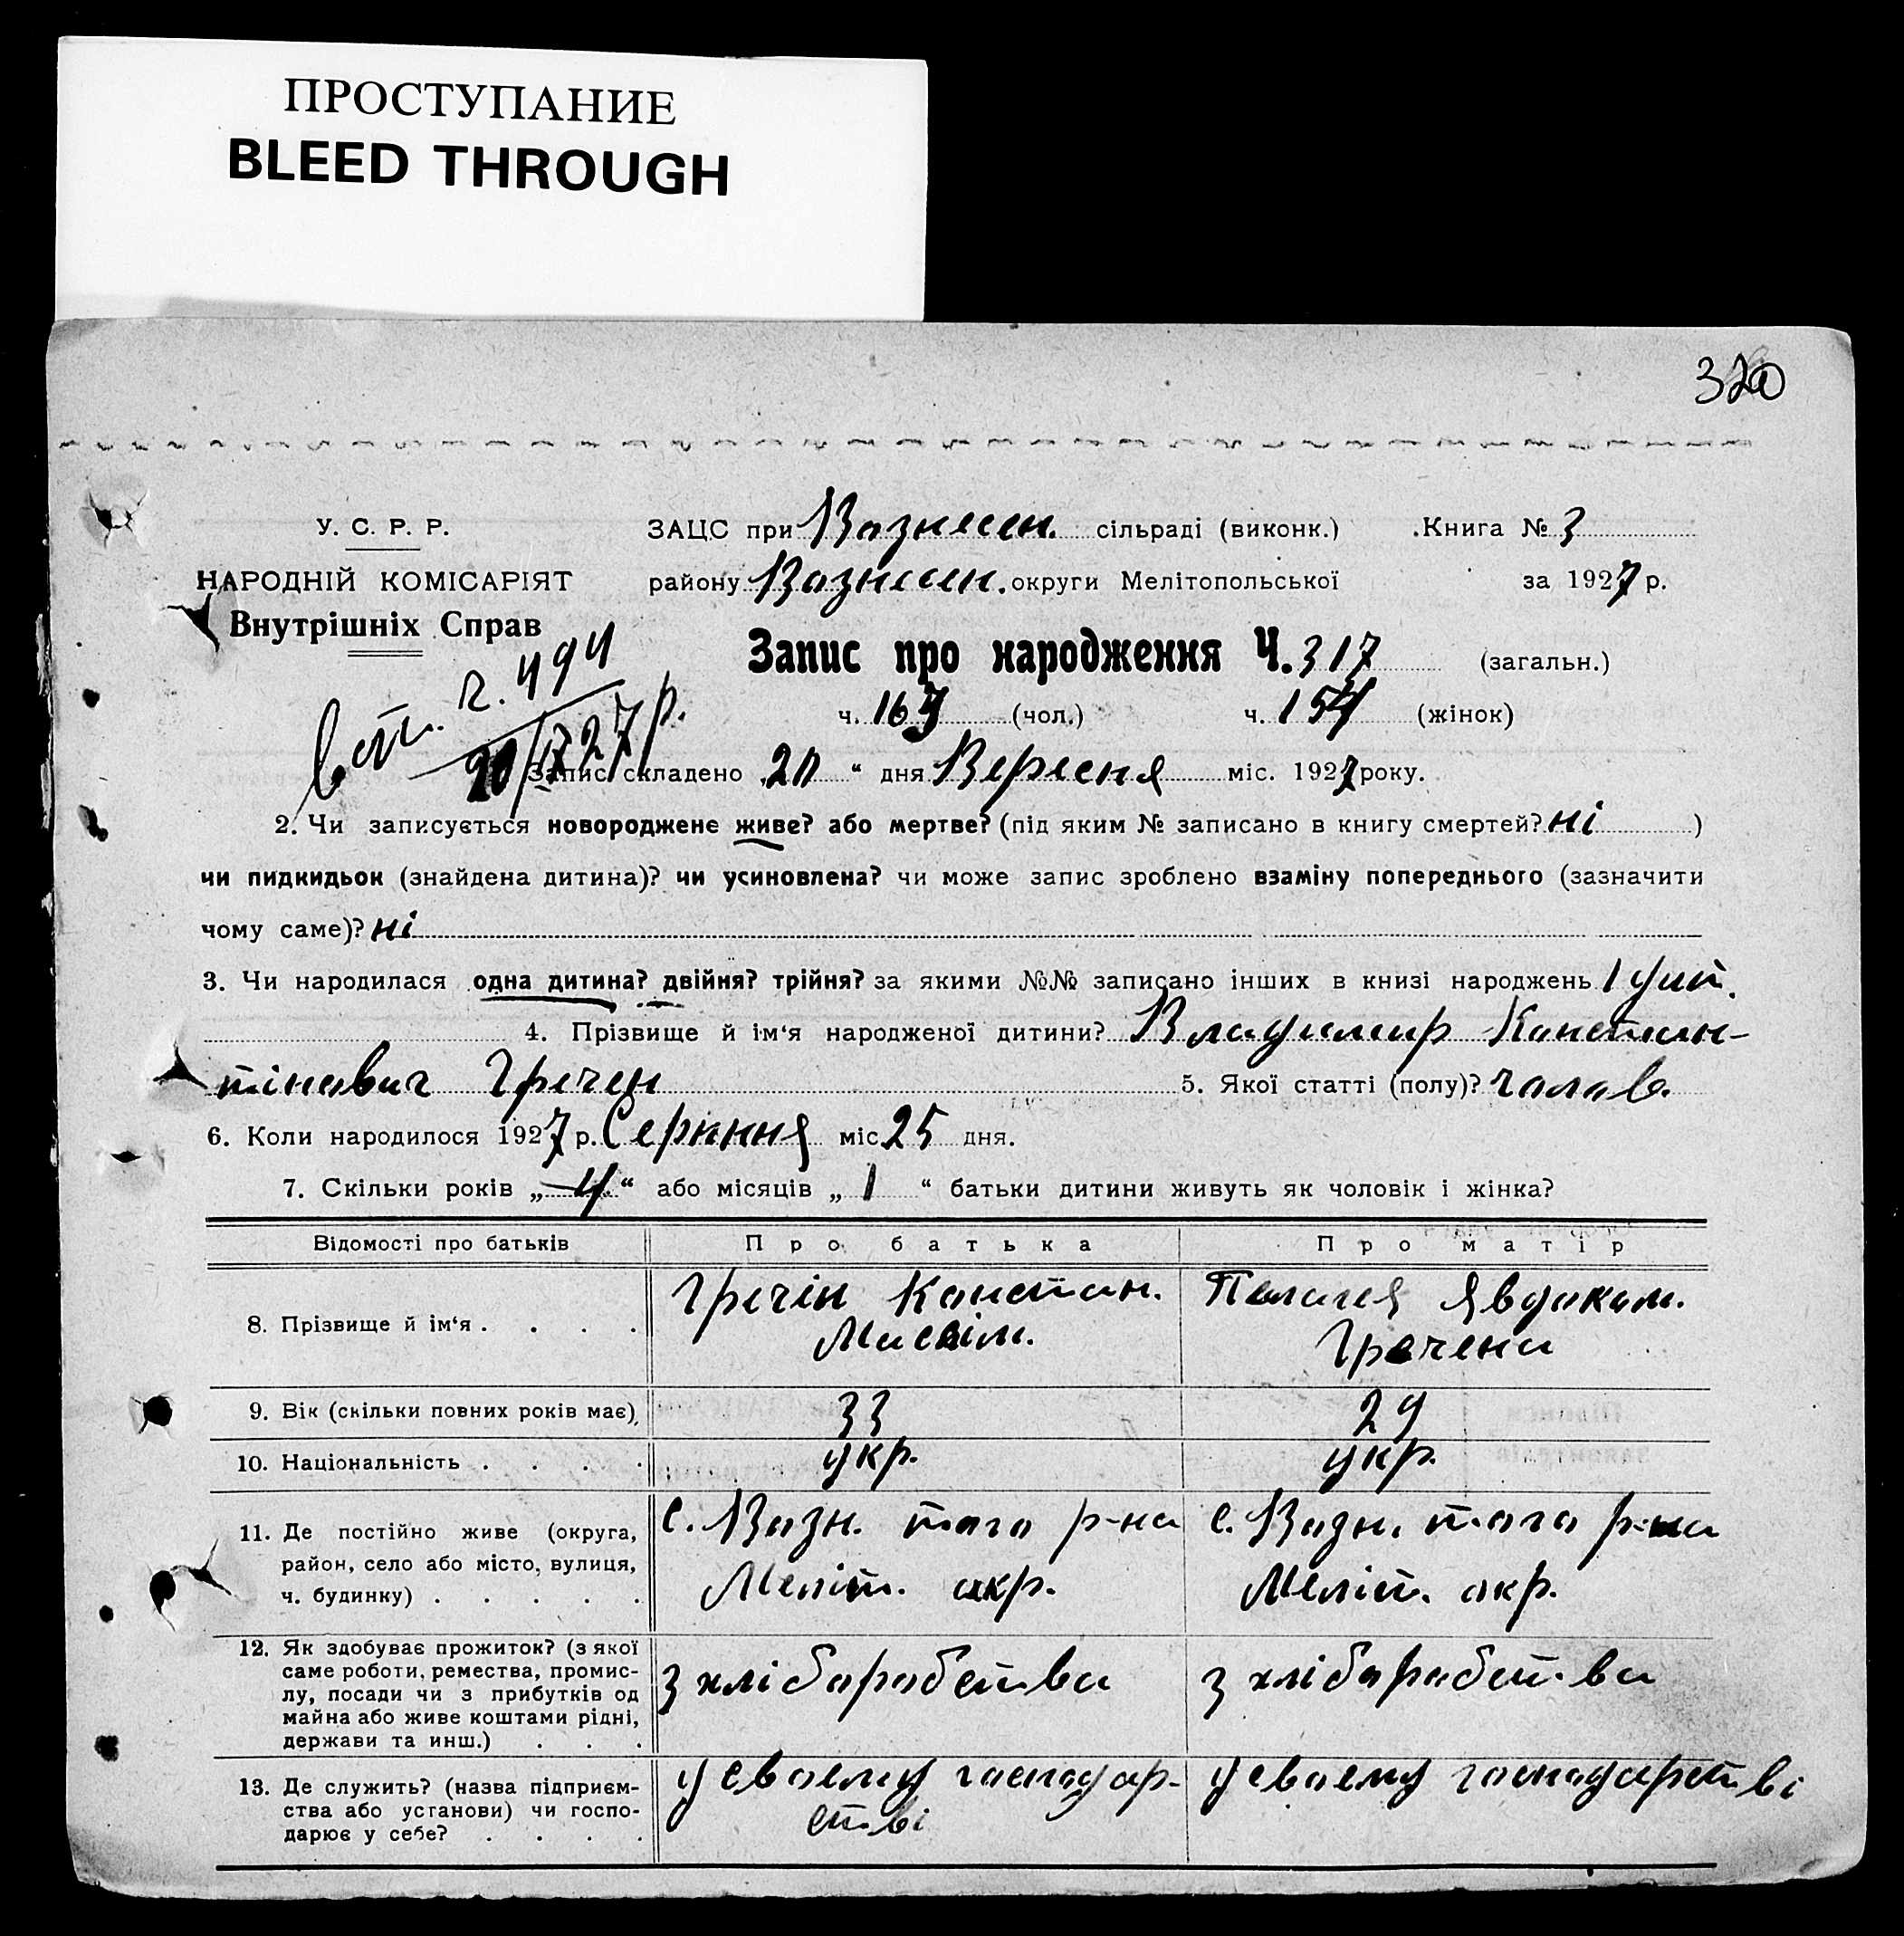 ПРОСТУПАНИЕ
BLEED THROUGH
320
У. С. Р. Р.
НАРОДНІЙ КОМІСАРІЯТ
Внутрішніх Справ
ЗАЦС при Вознесен. сільраді (виконк.) Книга № 3
району Вознесен. округи Мелітопольської за 1927 р.
Запис про народження Ч. 317 (загальн.)
ч. 163 (чол.) ч. 154 (жінок)
ч. 494
27 р.
Запис складено 20 " дня Вересня міс. 1927 року.
2. Чи записується новороджене живе? або мертве? (під яким № записано в книгу смертей? ні )
чи пидкидьок (знайдена дитина)? чи усиновлена? чи може запис зроблено взаміну попереднього (зазначити
чому саме)? ні
3. Чи народилася одна дитина? двійня? трійня? за якими №№ записано інших в книзі народжень 1 дит.
4. Прізвище й ім'я народженої дитини? Владимир Констан-
тінович Гречен 5. Якої статті (полу)? чолов.
6. Коли народилося 1927 р. Серпння міс 25 дня.
7. Скільки років „ 4 “ або місяців „ 1 “ батьки дитини живуть як чоловік і жінка?
Відомості про батьків Про батька Про матір
8. Прізвище й ім'я . . . . Гречін Констан. Максім. Пелагея Явдоким. Гречена
9. Вік (скільки повних років має) 33 29
10. Національність . . . . укр. укр.
11. Де постійно живе (округа,
район, село або місто, вулиця,
ч. будинку) . . . . .
с. Возн. того р-на
Меліт. окр.
с. Возн. того р-на
Меліт. окр.
12. Як здобуває прожиток? (з якої
саме роботи, ремества, промис-
лу, посади чи з прибутків од
майна або живе коштами рідні,
держави та инш.) . . .
з хліборобства
з хліборобства
13. Де служить? (назва підприєм-
ства або установи) чи госпо-
дарює у себе? . . . .
у своему господар-
стві
у своему господарстві